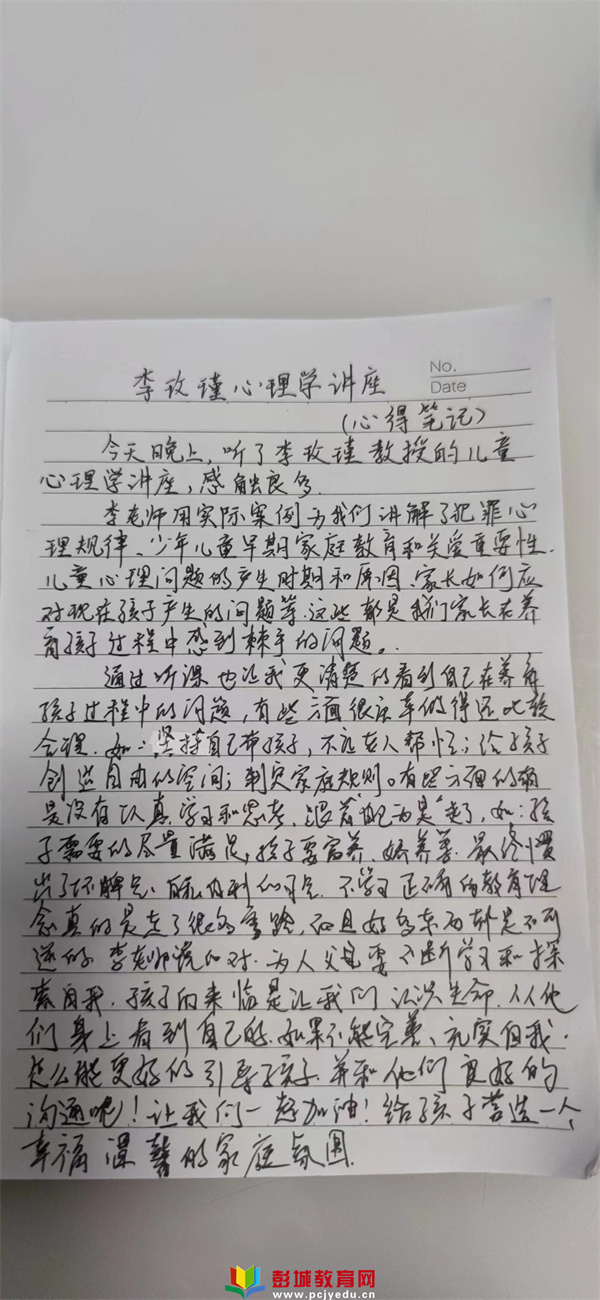 No.
Date
李玫瑾心理学讲座
(心得笔记)
今天晚上,听了李玫瑾教授的儿童
心理学讲座,感触良多.
李老师用实际案例为我们讲解了犯罪心
理规律、少年儿童早期家庭教育和关爱重要性.
儿童心理问题的产生时期和原因、家长如何应
对现在孩子产生的问题等.这些都是我们家长在养
育孩子过程中感到棘手的问题。
通过听课也让我更清楚的看到自己在养育
孩子过程中的问题,有些方面很庆幸做得还比较
合理.如:坚持自己带孩子,不让老人帮忙;给孩子
创造自由的空间;制定家庭规则。有些方面的确
是没有认真学习和思考,跟着"认为是"走了,如:孩
子需要的尽量满足,孩子要富养、娇养等.最终惯
出了坏脾气、自私自利的习气.不学习正确的教育理
念真的是走了很多弯路,而且好多东西都是不可
逆的.李老师说的对.为人父母要不断学习和探
索自我.孩子的来临是让我们认识生命.从他
们身上看到自己的.如果不能完善、充实自我.
怎么能更好的引导孩子.并和他们良好的
沟通呢!让我们一起加油!给孩子营造一个
幸福温馨的家庭氛围.
彭城教育网
www.pcjyedu.cn